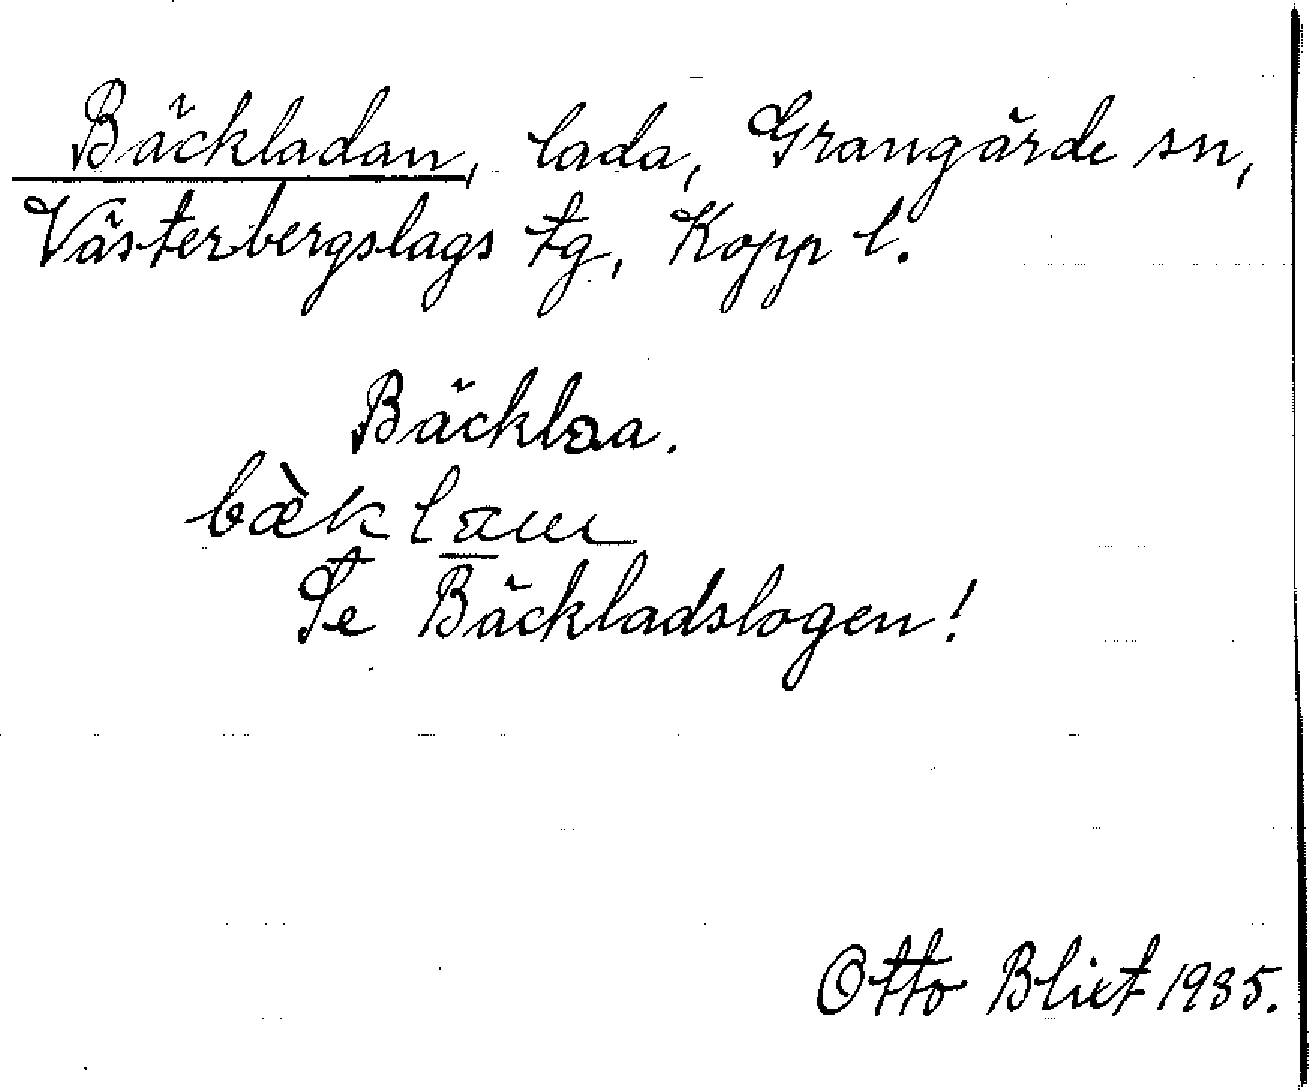 Bäckladan, lada, Grangärde sn,
Västerbergslags tg, Kopp l.
Bäcklaa.
Se Bäckladslogen!
Otto Blixt 1935.